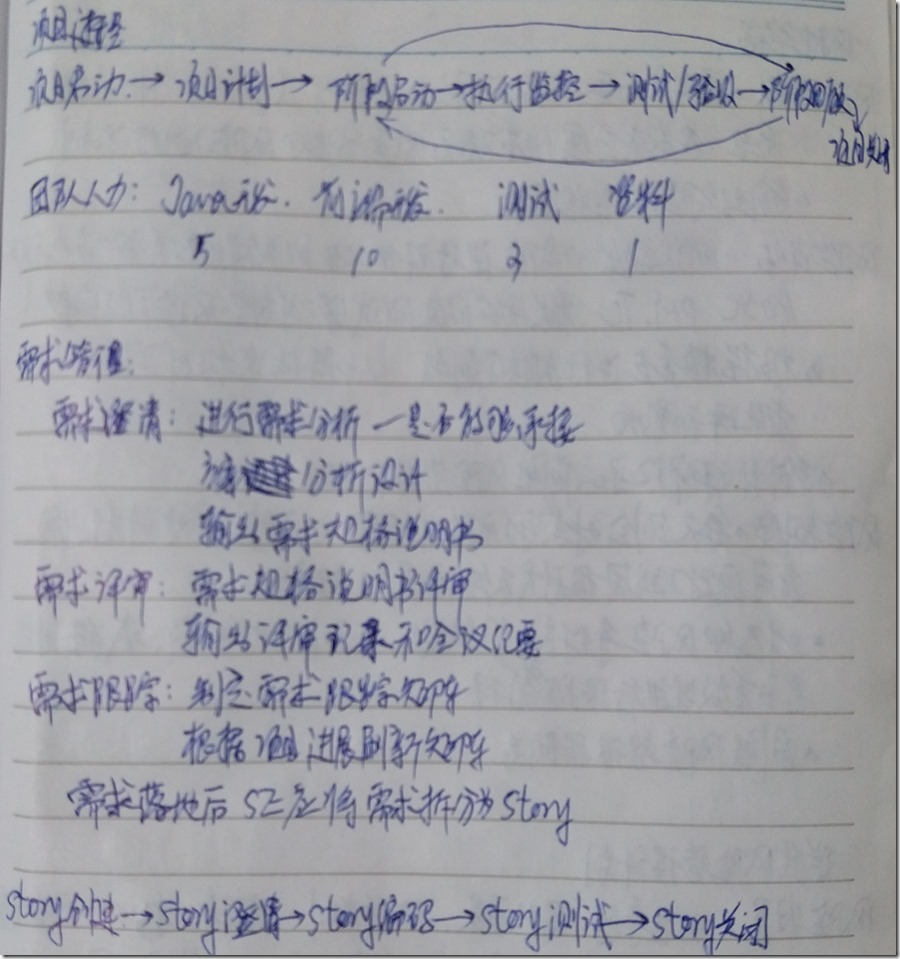 项目流程
项目启动→项目计划→阶段启动→执行监控→测试/验收→阶段回顾
项目关闭
团队人力: Java开发. 前端开发. 测试 资料
5 10 2 1
需求管理:
需求澄清: 进行需求分析—是否能够承接
方案分析设计
输出需求规格说明书
需求评审: 需求规格说明书评审
输出评审记录和会议纪要
需求跟踪: 制定需求跟踪矩阵
根据项目进展刷新矩阵
需求落地后 SE应将需求拆分为Story
Story创建→Story澄清→Story编码→Story测试→Story关闭